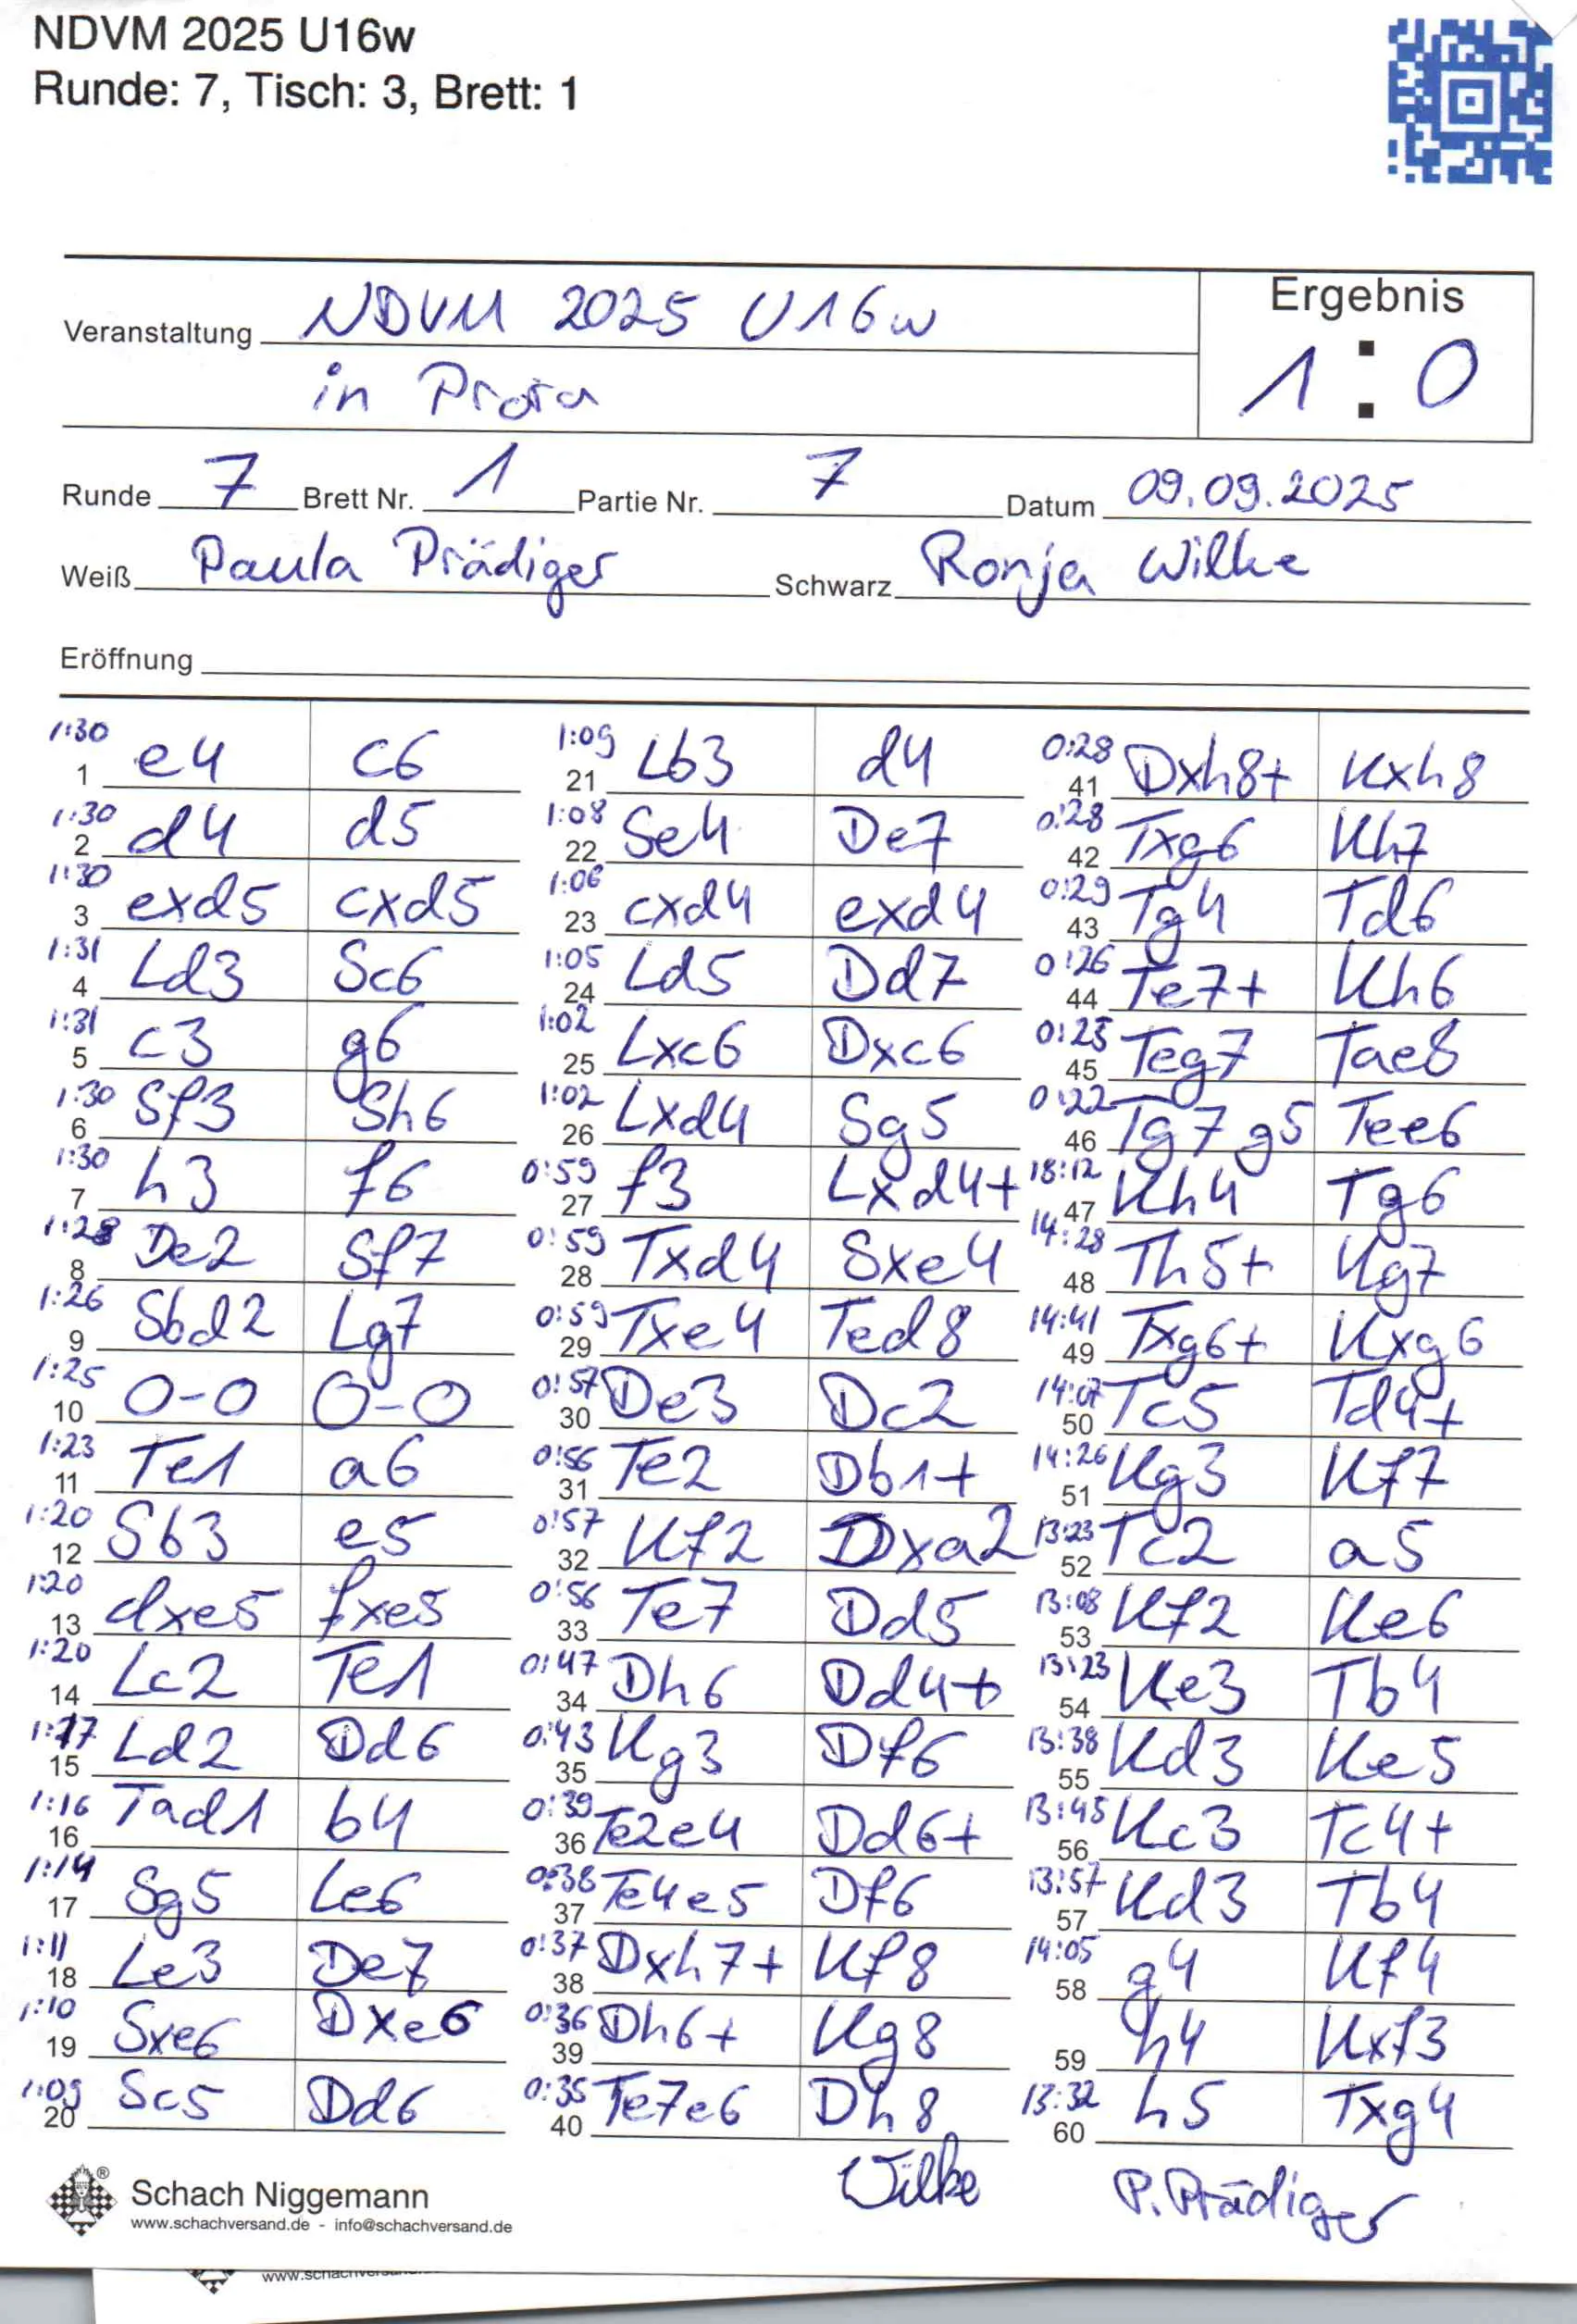 NDVM 2025 U16w
Runde: 7, Tisch: 3, Brett: 1
Veranstaltung NDVM 2025 U16w
in Prora
Ergebnis
1 : 0
Runde 7 Brett Nr. 1 Partie Nr. 7 Datum 09.09.2025
Weiß Paula Prädiger Schwarz Ronja Wilke
Eröffnung
1:30 1 e4 c6
1:30 2 d4 d5
1:30 3 exd5 cxd5
1:31 4 Ld3 Sc6
1:31 5 c3 g6
1:30 6 Sf3 Sh6
1:30 7 h3 f6
1:28 8 De2 Sf7
1:26 9 Sbd2 Lg7
1:25 10 O-O O-O
1:23 11 Te1 a6
1:20 12 Sb3 e5
1:20 13 dxe5 fxe5
1:20 14 Lc2 Te1
1:17 15 Ld2 Dd6
1:16 16 Tad1 b4
1:14 17 Sg5 Le6
1:11 18 Le3 De7
1:10 19 Sxe6 Dxe6
1:09 20 Sc5 Dd6
1:09 21 Lb3 d4
1:08 22 Se4 De7
1:06 23 cxd4 exd4
1:05 24 Ld5 Dd7
1:02 25 Lxc6 Dxc6
1:02 26 Lxd4 Sg5
0:59 27 f3 Lxd4+
0:59 28 Txd4 Sxe4
0:59 29 Txe4 Ted8
0:57 30 De3 Dc2
0:56 31 Te2 Db1+
0:57 32 Kf2 Dxa2
0:56 33 Te7 Dd5
0:47 34 Dh6 Dd4+
0:43 35 Kg3 Df6
0:39 36 Te2e4 Dd6+
0:38 37 Te4e5 Df6
0:37 38 Dxh7+ Kf8
0:36 39 Dh6+ Kg8
0:35 40 Te7e6 Dh8
0:28 41 Dxh8+ Kxh8
0:28 42 Txg6 Kh7
0:29 43 Tg4 Td6
0:26 44 Te7+ Kh6
0:25 45 Teg7 Tae8
0:22 46 Tg7g5 Tee6
18:12 47 Kh4 Tg6
14:28 48 Th5+ Kg7
14:41 49 Txg6+ Kxg6
14:07 50 Tc5 Td4+
14:26 51 Kg3 Kf7
13:23 52 Tc2 a5
13:08 53 Kf2 Ke6
13:23 54 Ke3 Tb4
13:38 55 Kd3 Ke5
13:45 56 Kc3 Tc4+
13:57 57 Kd3 Tb4
14:05 58 g4 Kf4
59 h4 Kxf3
13:32 60 h5 Txg4
Wilke P. Prädiger
® Schach Niggemann
www.schachversand.de - info@schachversand.de